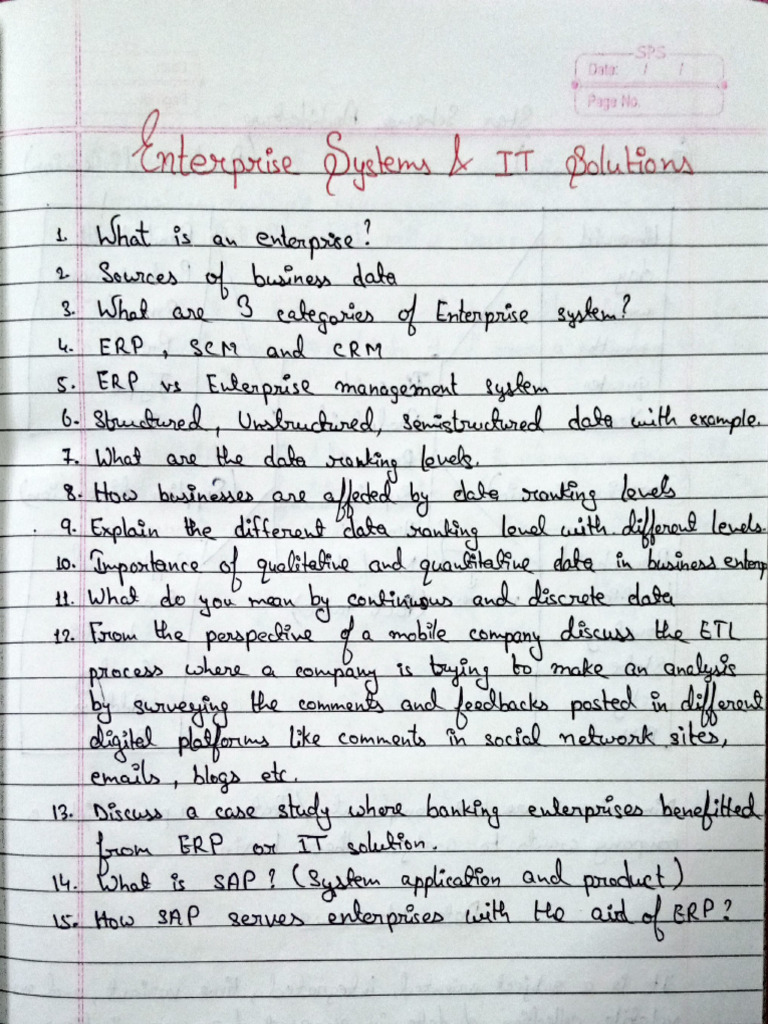 SPS
Date: / /
Page No.
Enterprise Systems & IT Solutions
1. What is an enterprise?
2. Sources of business data
3. What are 3 categories of Enterprise system?
4. ERP, SCM and CRM
5. ERP vs Enterprise management system
6. Structured, Unstructured, semistructured data with example.
7. What are the data ranking levels.
8. How businesses are affected by data ranking levels
9. Explain the different data ranking level with different levels.
10. Importance of qualitative and quantitative data in business enterp
11. What do you mean by continuous and discrete data
12. From the perspective of a mobile company discuss the ETL
process where a company is trying to make an analysis
by surveying the comments and feedbacks posted in different
digital platforms like comments in social network sites,
emails, blogs etc.
13. Discuss a case study where banking enterprises benefitted
from ERP or IT solution.
14. What is SAP? (System application and product)
15. How SAP serves enterprises with the aid of ERP?